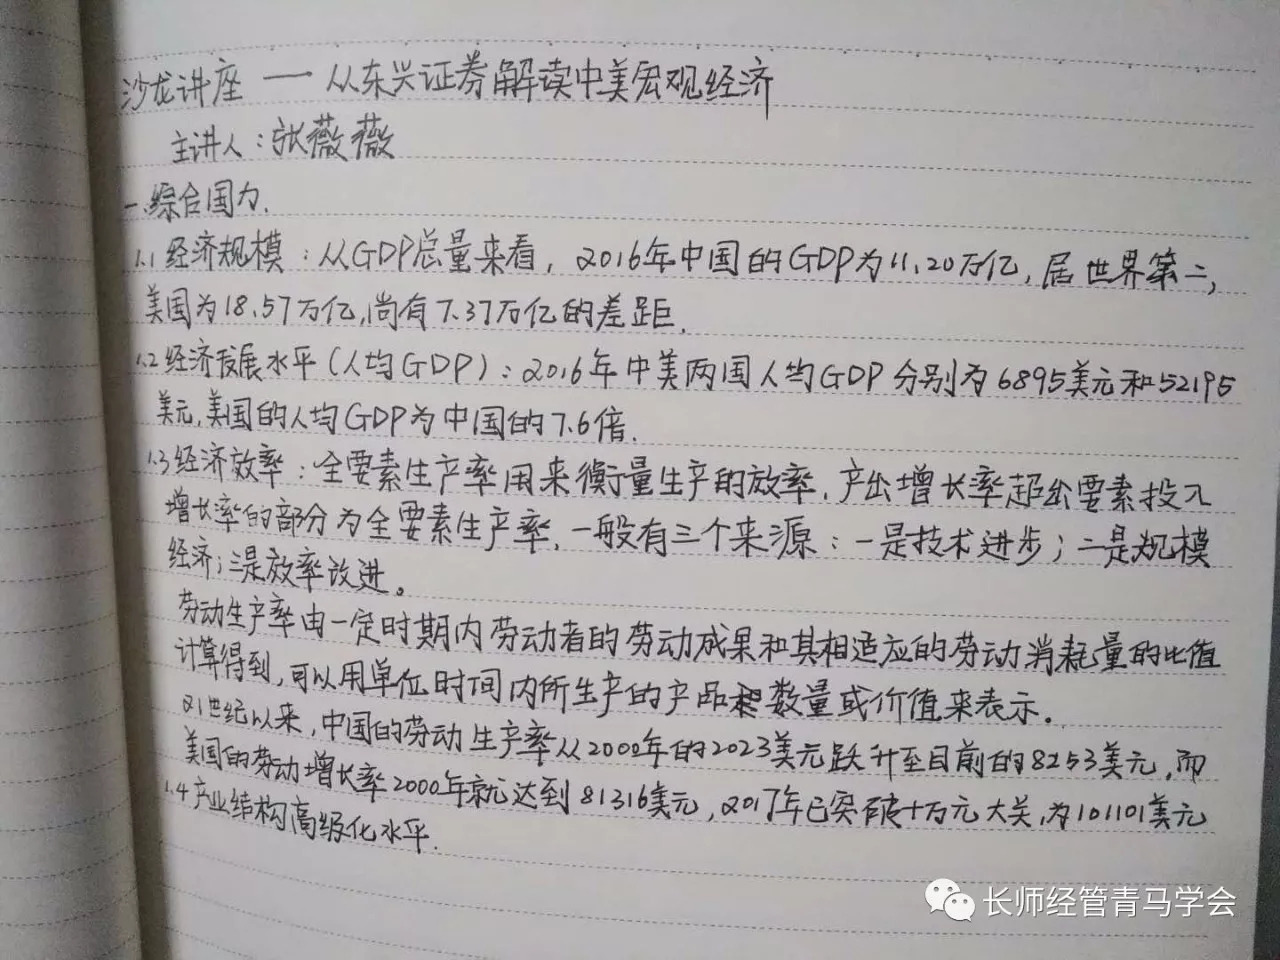 沙龙讲座 —— 从东兴证券解读中美宏观经济
主讲人：张薇薇
一.综合国力.
1.1 经济规模：从GDP总量来看，2016年中国的GDP为11.20万亿，居世界第二，
美国为18.57万亿，尚有7.37万亿的差距.
1.2 经济发展水平（人均GDP）：2016年中美两国人均GDP分别为6895美元和52195
美元，美国的人均GDP为中国的7.6倍.
1.3 经济效率：全要素生产率用来衡量生产的效率，产出增长率超出要素投入
增长率的部分为全要素生产率，一般有三个来源：一是技术进步；二是规模
经济；三是效率改进。
劳动生产率由一定时期内劳动者的劳动成果和其相适应的劳动消耗量的比值
计算得到，可以用单位时间内所生产的产品数量或价值来表示.
21世纪以来，中国的劳动生产率从2000年的2023美元跃升至目前的8253美元，而
美国的劳动增长率2000年就达到81316美元，2017年已突破十万元大关，为101101美元
1.4 产业结构高级化水平.
长师经管青马学会